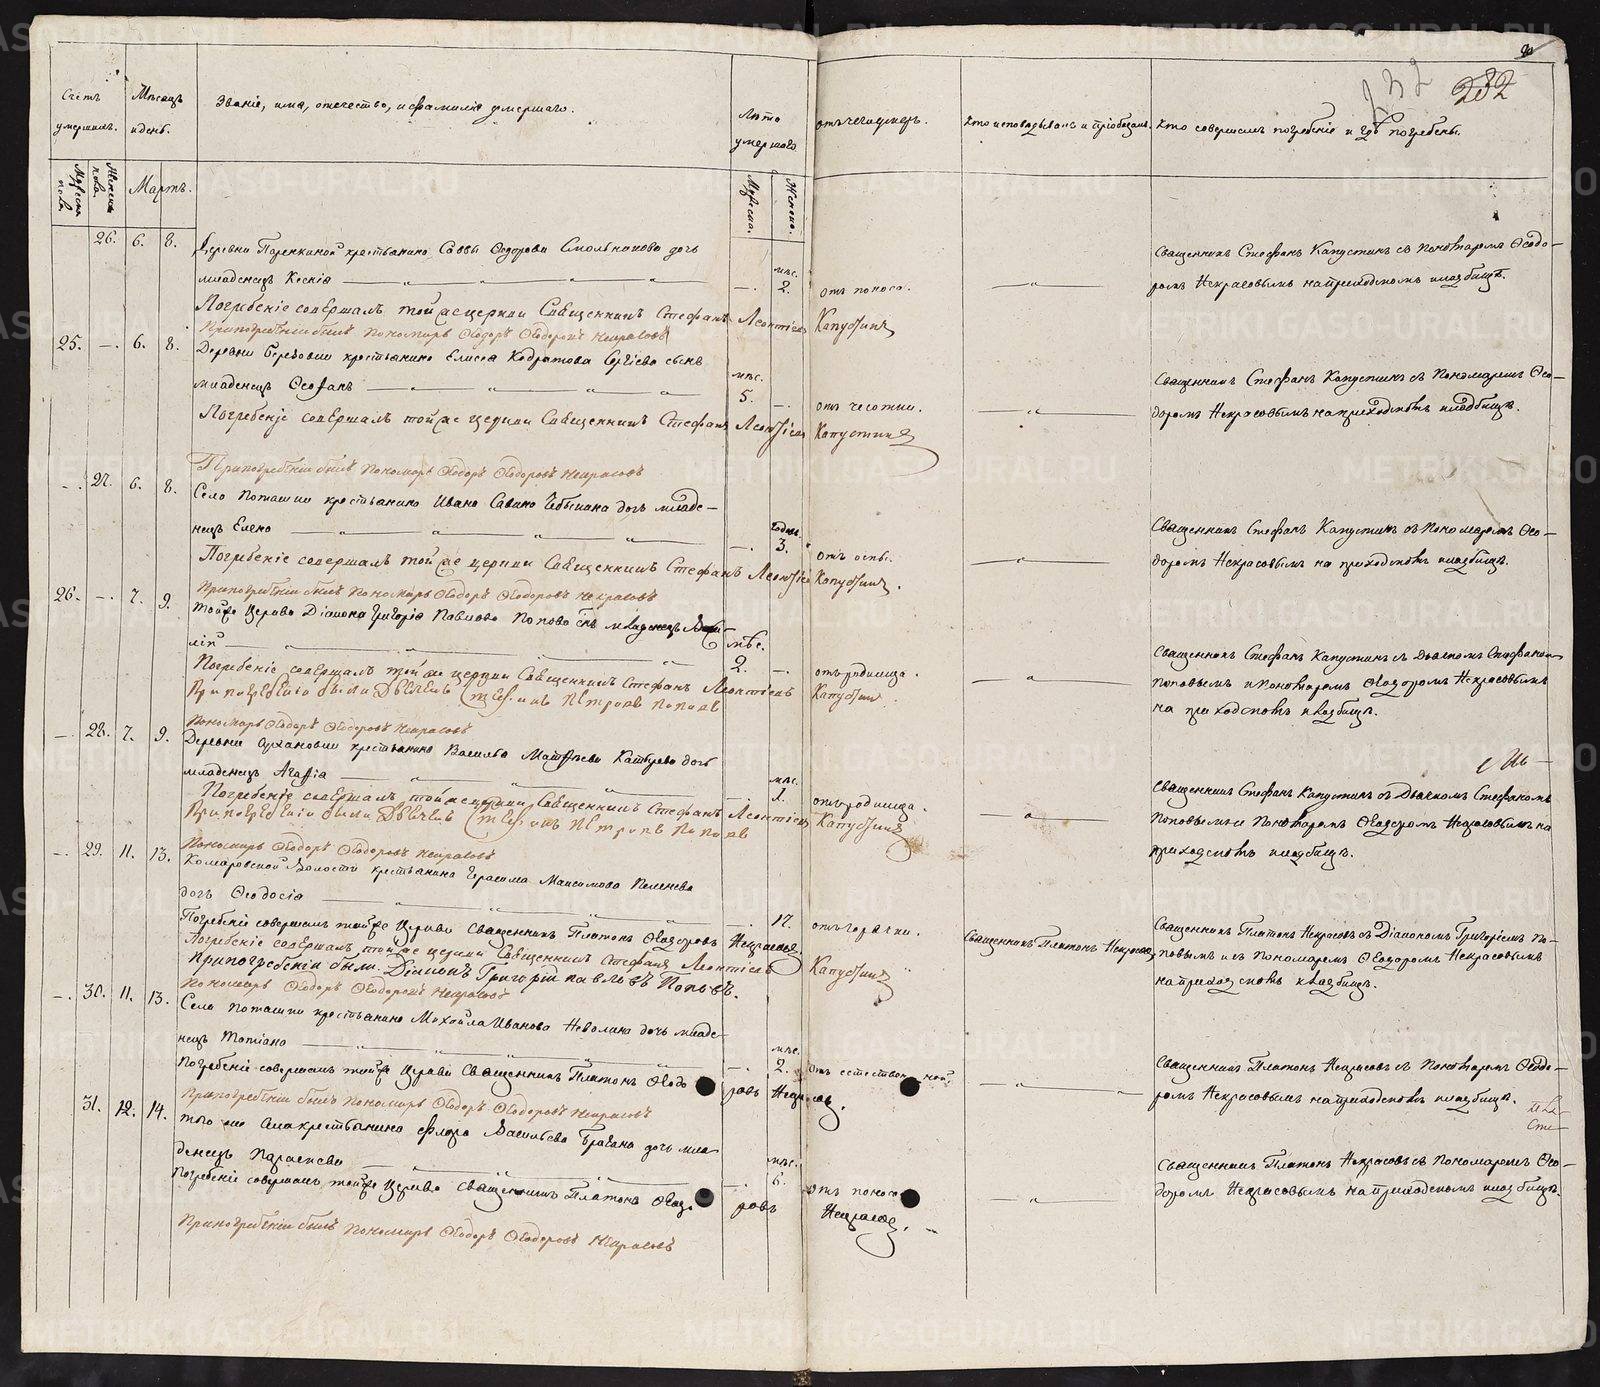 232
282
Счетъ умершихъ.
Мѣсяцъ и день.
Званіе, имя, отчество, и фамилія умершаго.
Лѣта умершаго
отъ чего умеръ.
Кто исповѣдывалъ и пріобщалъ.
Кто совершалъ погребеніе и гдѣ погребены.
Мужеска пола.
Женска пола.
Мартъ.
Мужеска.
Женска.
26. 6. 8.
Деревни крестьянина Саввы Ѳедорова Смольникова дочь
младенецъ Ксенія
мѣс.
2.
отъ поноса.
Священникъ Стефанъ Капустинъ съ Пономаремъ Ѳеодо-
ромъ Некрасовымъ на приходскомъ кладбищѣ.
Погребеніе совершалъ той же церкви Священникъ Стефанъ Леонтіевъ Капустинъ
Припогребеніи былъ Пономарь Ѳеодоръ Ѳеодоровъ Некрасовъ
25. —. 6. 8.
Деревни Березовки крестьянина Елисея Кодратова Сергіева сынъ
младенецъ Ѳеофанъ
мѣс.
5.
отъ чесотки.
Священникъ Стефанъ Капустинъ съ Пономаремъ Ѳео-
доромъ Некрасовымъ на приходскомъ кладбищѣ.
Погребеніе совершалъ той же церкви Священникъ Стефанъ Леонтіевъ Капустинъ
Припогребеніи былъ Пономарь Ѳеодоръ Ѳеодоровъ Некрасовъ
—. 27. 6. 8.
Села Поташки крестьянина Ивана Савина дочь младе-
нецъ Елена
года
3.
отъ оспы.
Священникъ Стефанъ Капустинъ съ Пономаремъ Ѳео-
доромъ Некрасовымъ на приходскомъ кладбищѣ.
Погребеніе совершалъ той же церкви Священникъ Стефанъ Леонтіевъ Капустинъ.
Припогребеніи былъ Пономарь Ѳеодоръ Ѳеодоровъ Некрасовъ
26. —. 7. 9.
тойже Церкви Діакона Григорія Павлова Попова сынъ младенецъ
лій
мѣс.
2.
отъ родимца.
Священникъ Стефанъ Капустинъ съ Дьячкомъ Стефаномъ
Поповымъ и Пономаремъ Ѳеодоромъ Некрасовымъ
на приходскомъ кладбищѣ.
Погребеніе совершалъ той же церкви Священникъ Стефанъ Леонтіевъ Капустинъ
При погребеніи были Дьячекъ Стефанъ Петровъ Поповъ
Пономарь Ѳеодоръ Ѳеодоровъ Некрасовъ
—. 28. 7. 9.
Деревни крестьянина Василья Матфеева дочь
младенецъ Агафія
мѣс.
1.
отъ родимца.
Священникъ Стефанъ Капустинъ съ Дьячкомъ Стефаномъ
Поповымъ и Пономаремъ Ѳеодоромъ Некрасовымъ на
приходскомъ кладбищѣ.
Погребеніе совершалъ той же церкви Священникъ Стефанъ Леонтіевъ Капустинъ
При погребеніи были Дьячекъ Стефанъ Петровъ Поповъ
Пономарь Ѳеодоръ Ѳеодоровъ Некрасовъ
—. 29. 11. 13.
Комаровской Волости крестьянина Герасима Максимова дочь
Ѳеодосія
17.
отъ горячки.
Священникъ Платонъ Некрасовъ
Священникъ Платонъ Некрасовъ съ Діакономъ Григоріемъ По-
повымъ и съ Пономаремъ Ѳеодоромъ Некрасовымъ
на приходскомъ кладбищѣ.
Погребеніе совершалъ тойже Церкви Священникъ Платонъ Ѳеодоровъ Некрасовъ
Погребеніе совершалъ той же церкви Священникъ Стефанъ Леонтіевъ Капустинъ
При погребеніи были: Діаконъ Григорій Павловъ Поповъ.
Пономарь Ѳеодоръ Ѳеодоровъ Некрасовъ
—. 30. 11. 13.
Села Поташки крестьянина Михайла Иванова Неволина дочь младе-
нецъ Татіана
мѣс.
2.
Священникъ Платонъ Некрасовъ съ Пономаремъ Ѳеодо-
ромъ Некрасовымъ на приходскомъ кладбищѣ.
Погребеніе совершалъ тойже Церкви Священникъ Платонъ Ѳеодоровъ Некрасовъ.
Припогребеніи былъ Пономарь Ѳеодоръ Ѳеодоровъ Некрасовъ
31. 12. 14.
того же Села крестьянина Флора Васильева дочь мла-
денецъ Параскева
мѣс.
6.
отъ поноса
Священникъ Платонъ Некрасовъ съ Пономаремъ Ѳео-
доромъ Некрасовымъ на приходскомъ кладбищѣ.
Погребеніе совершалъ тойже Церкви Священникъ Платонъ Ѳеодоровъ Некрасовъ.
Припогребеніи былъ Пономарь Ѳеодоръ Ѳеодоровъ Некрасовъ
METRIKI.GASO-URAL.RU